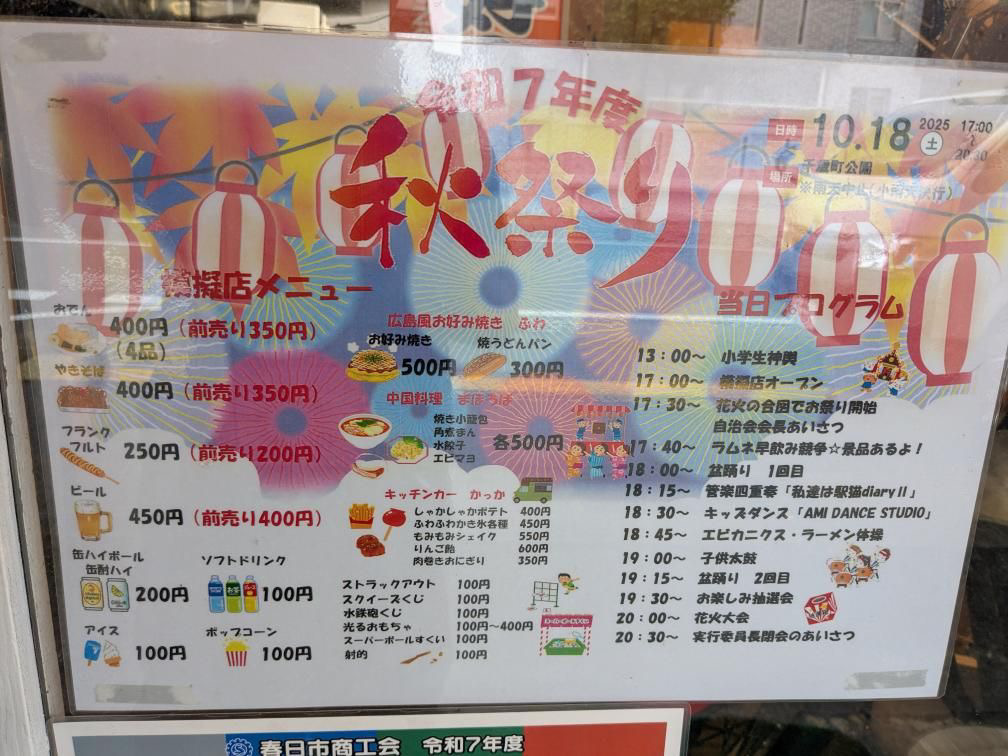 令和7年度
秋祭り
日時 10.18 2025 土 17:00 〜 20:30
場所 千歳町公園
※雨天中止(小雨決行)
模擬店メニュー
おでん
400円(前売り350円)
(4品)
やきそば
400円(前売り350円)
フランク
フルト
250円(前売り200円)
ビール
450円(前売り400円)
缶ハイボール
缶酎ハイ
200円
ソフトドリンク
100円
アイス
100円
ポップコーン
100円
広島風お好み焼き ふわ
お好み焼き 500円
焼うどんパン 300円
中国料理 まほろば
焼き小籠包
角煮まん
水餃子
エビマヨ
各500円
キッチンカー かっか
しゃかしゃかポテト 400円
ふわふわかき氷各種 450円
もみもみシェイク 550円
りんご飴 600円
肉巻きおにぎり 350円
ストラックアウト 100円
スクイーズくじ 100円
水鉄砲くじ 100円
光るおもちゃ 100円〜400円
スーパーボールすくい 100円
射的 100円
スーパーボールすくい
当日プログラム
13:00〜 小学生神輿
17:00〜 模擬店オープン
17:30〜 花火の合図でお祭り開始
自治会会長あいさつ
17:40〜 ラムネ早飲み競争☆景品あるよ!
18:00〜 盆踊り 1回目
18:15〜 管楽四重奏「私達は駅猫diaryⅡ」
18:30〜 キッズダンス「AMI DANCE STUDIO」
18:45〜 エピカニクス・ラーメン体操
19:00〜 子供太鼓
19:15〜 盆踊り 2回目
19:30〜 お楽しみ抽選会
20:00〜 花火大会
20:30〜 実行委員長閉会のあいさつ
春日市商工会 令和7年度